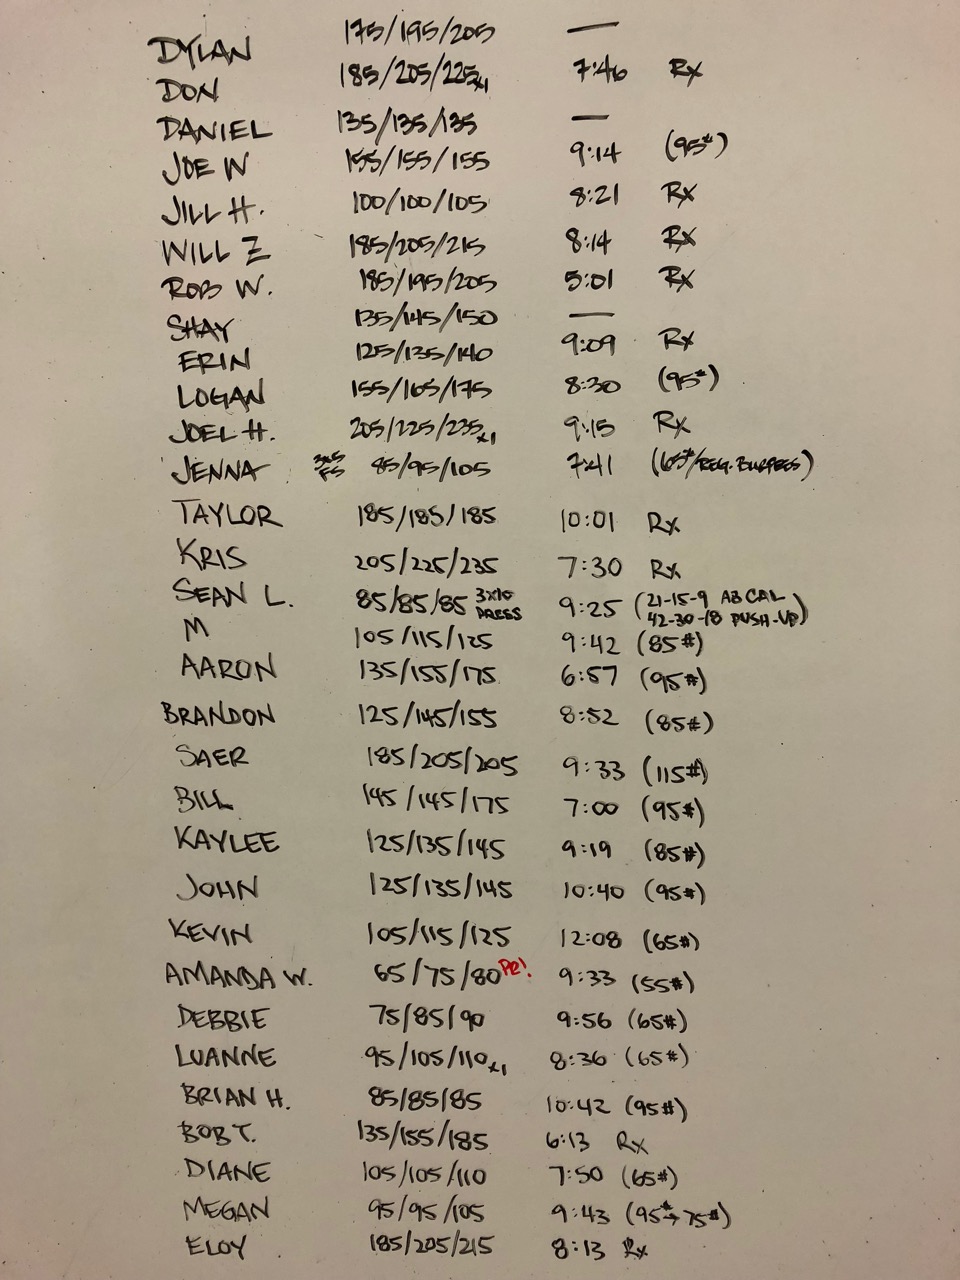 DYLAN 175/195/205 —
DON 185/205/225x1 7:46 Rx
DANIEL 135/135/135 —
JOE W 155/155/155 9:14 (95#)
JILL H. 100/100/105 8:21 Rx
WILL Z 185/205/215 8:14 Rx
ROB W. 185/195/205 5:01 Rx
SHAY 135/145/150 —
ERIN 125/135/140 9:09 Rx
LOGAN 155/165/175 8:30 (95#)
JOEL H. 205/225/235x1 9:15 Rx
JENNA 3x5 FS 85/95/105 7:41 (65#/REG. BURPEES)
TAYLOR 185/185/185 10:01 Rx
KRIS 205/225/235 7:30 Rx
SEAN L. 85/85/85 3x10 PRESS 9:25 (21-15-9 AB CAL 42-30-18 PUSH-UP)
M 105/115/125 9:42 (85#)
AARON 135/155/175 6:57 (95#)
BRANDON 125/145/155 8:52 (85#)
SAER 185/205/205 9:33 (115#)
BILL 145/145/175 7:00 (95#)
KAYLEE 125/135/145 9:19 (85#)
JOHN 125/135/145 10:40 (95#)
KEVIN 105/115/125 12:08 (65#)
AMANDA W. 65/75/80 PR! 9:33 (55#)
DEBBIE 75/85/90 9:56 (65#)
LUANNE 95/105/110x1 8:36 (65#)
BRIAN H. 85/85/85 10:42 (95#)
BOB T. 135/155/185 6:13 Rx
DIANE 105/105/110 7:50 (65#)
MEGAN 95/95/105 9:43 (95#→75#)
ELOY 185/205/215 8:13 Rx